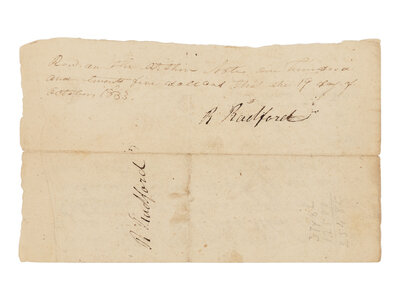 Recd on the within Note one hundred
and twenty five dollars this the 19 day of
October 1833.
R Radford
R Radford